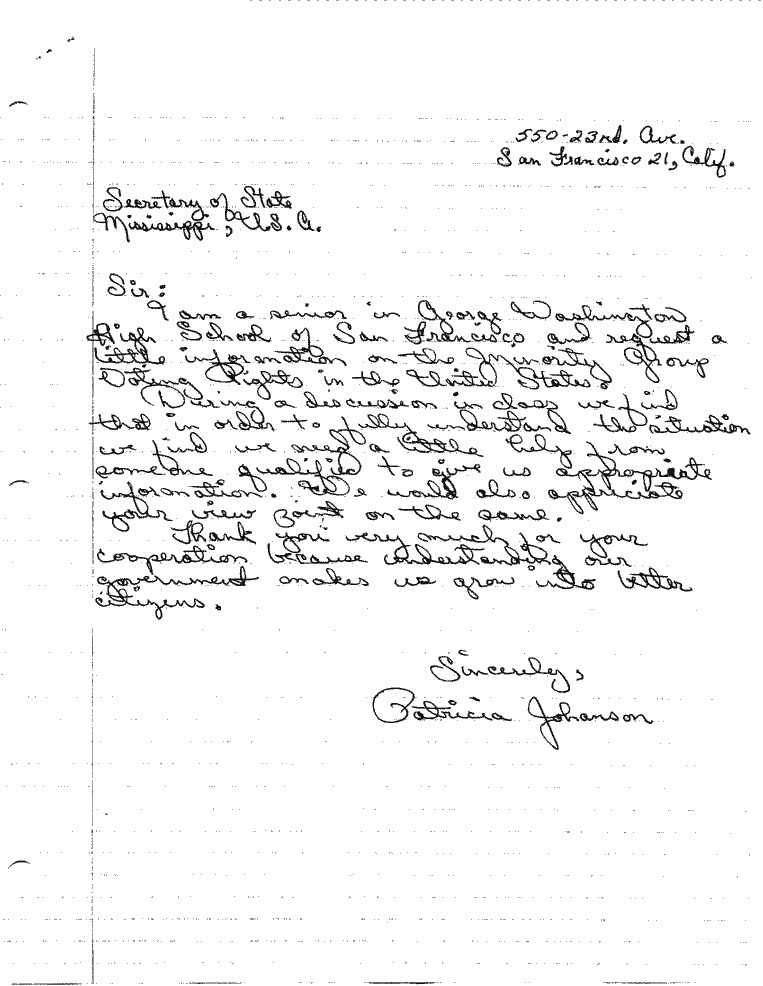 550-23rd. Ave.
San Francisco 21, Calif.
Secretary of State
Mississippi, U.S.A.
Sir:
I am a senior in George Washington
High School of San Francisco and request a
little information on the Minority Group
Voting Rights in the United States.
During a discussion in class we find
that in order to fully understand the situation
we find we need a little help from
someone qualified to give us appropriate
information. We would also appriciate
your view point on the same.
Thank you very much for your
cooperation because understanding our
government makes us grow into better
citizens.
Sincerely,
Patricia Johanson